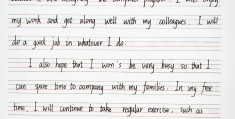 my work and get along well with my colleagues. I will
do a good job in whatever I do.
I also hope that I won's be very busy so that I
can spare time to company with my families. In my free
time, I will continue to take regular exercise, such as